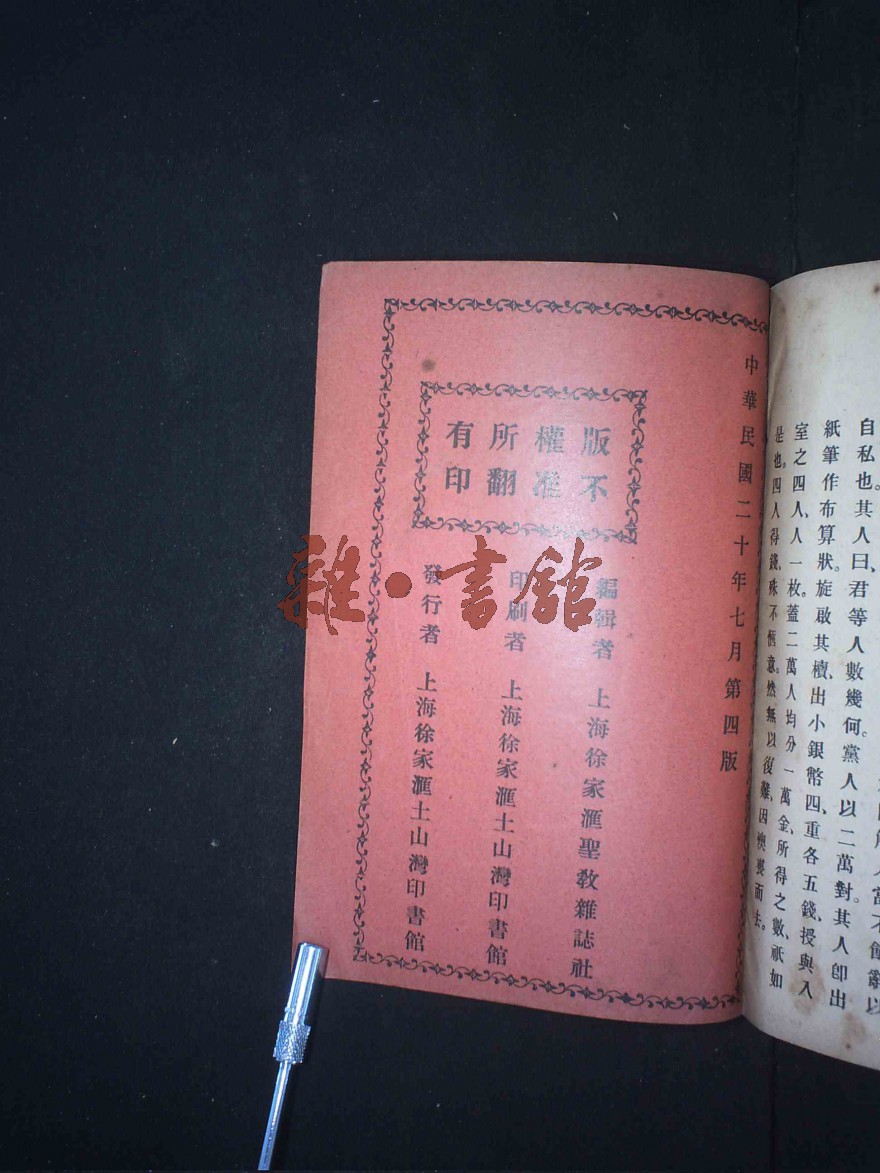 自私也。其人曰、君等人數幾何。黨人以二萬對。其人卽出
紙筆作布算狀。旋啟其櫝、出小銀幣四、重各五錢、授與入
室之四人、人一枚。蓋二萬人均分一萬金、所得之數、祇如
是也。四人得錢、殊不愜意。然無以復難、因懊喪而去。
中華民國二十年七月第四版
版權所有
不准翻印
編輯者 上海徐家滙聖教雜誌社
印刷者 上海徐家滙土山灣印書館
發行者 上海徐家滙土山灣印書館
雜·書館